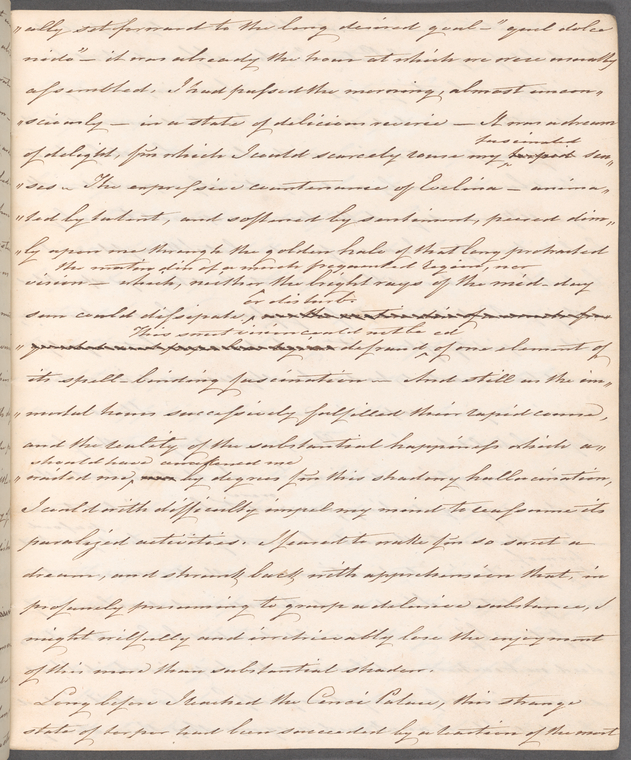 "ally set forward to the long desired goal — "quel dolce
nido" — it was already the hour at which we were usually
assembled. I had passed the morning, almost uncon"
"sciously — in a state of delicious reverie — It was a dream
fascinated
of delight, from which I could scarcely rouse my torpid sen"
"ses — The expressive countenance of Evelina — anima"
"ted by talent, and softened by sentiment, peered dim"
"ly upon me through the golden halo of that long protracted
the motley din of a much frequented region, nor
vision — which, neither the bright rays of the mid-day
or disturb.
sun could dissipate,
This sweet vision could not be
defraud of one element of
its spell-binding fascination — And still as the im"
"mortal hours successively fulfilled their rapid course,
and the reality of the substantial happiness which a"
should have awakened me
"waited me, by degrees from this shadowy hallucination,
I could with difficulty impel my mind to reassume its
paralyzed activities. I feared to wake from so sweet a
dream, and shrunk back with apprehension that, in
profanely presuming to grasp a delusive substance, I
might wilfully and irretrievably lose the enjoyment
of this more than substantial shadow.
Long before I reached the Cenci Palace, this strange
state of torpor had been succeeded by a reaction of the most